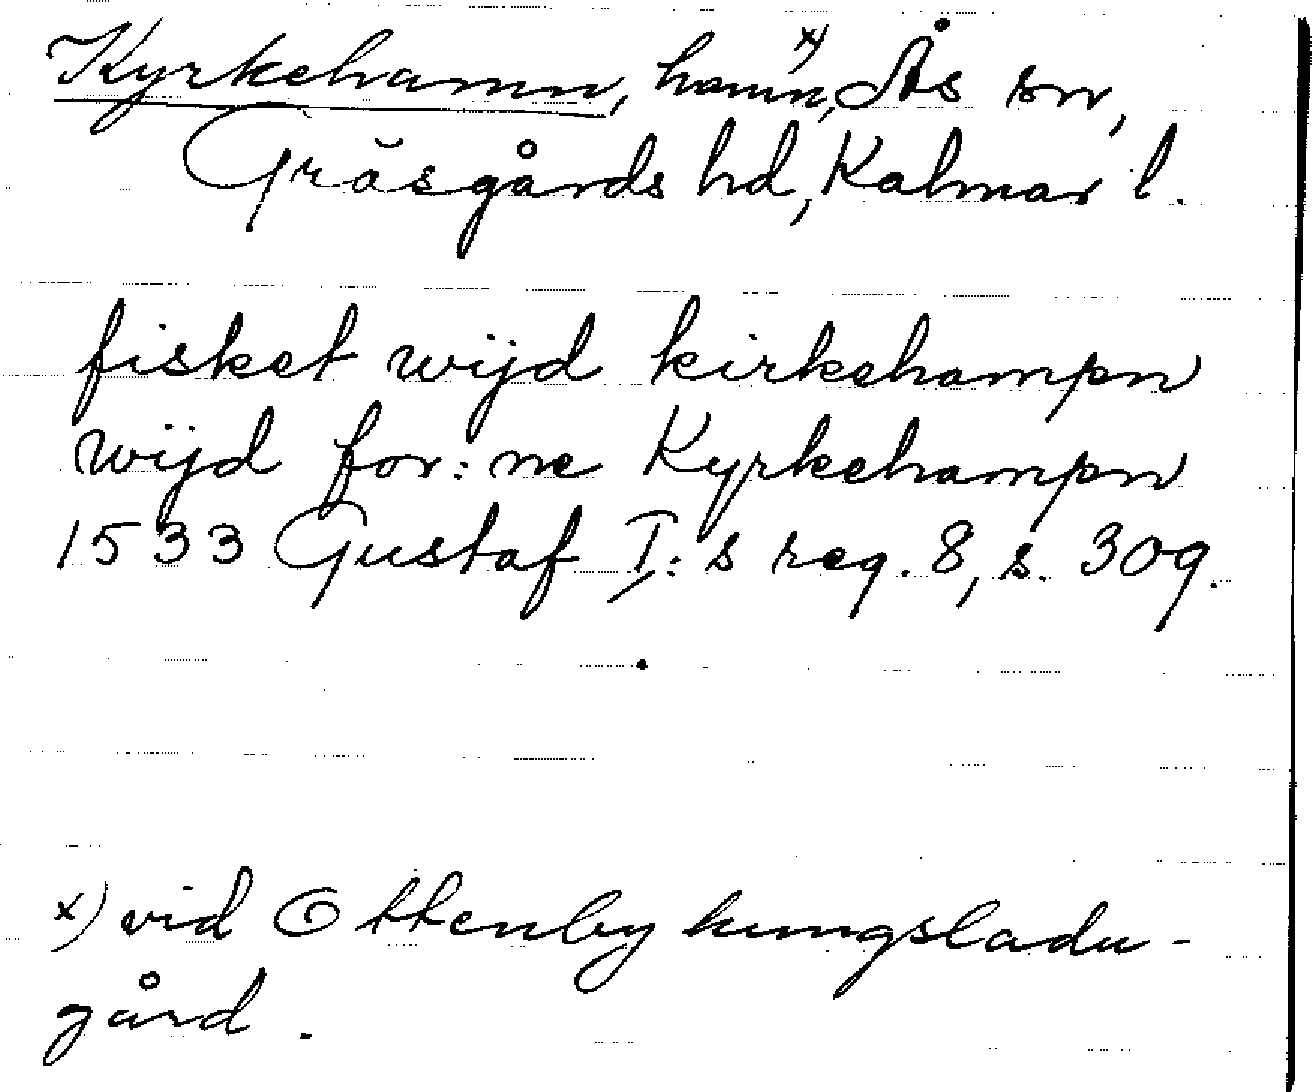 Kyrkehamn, hamn,x) Ås sn,
Gräsgårds hd, Kalmar l.
fisket wijd kirkehampn
wijd for:ne Kyrkehampn
1533 Gustaf I:s reg. 8, s. 309.
x) vid Ottenby kungsladu-
gård.